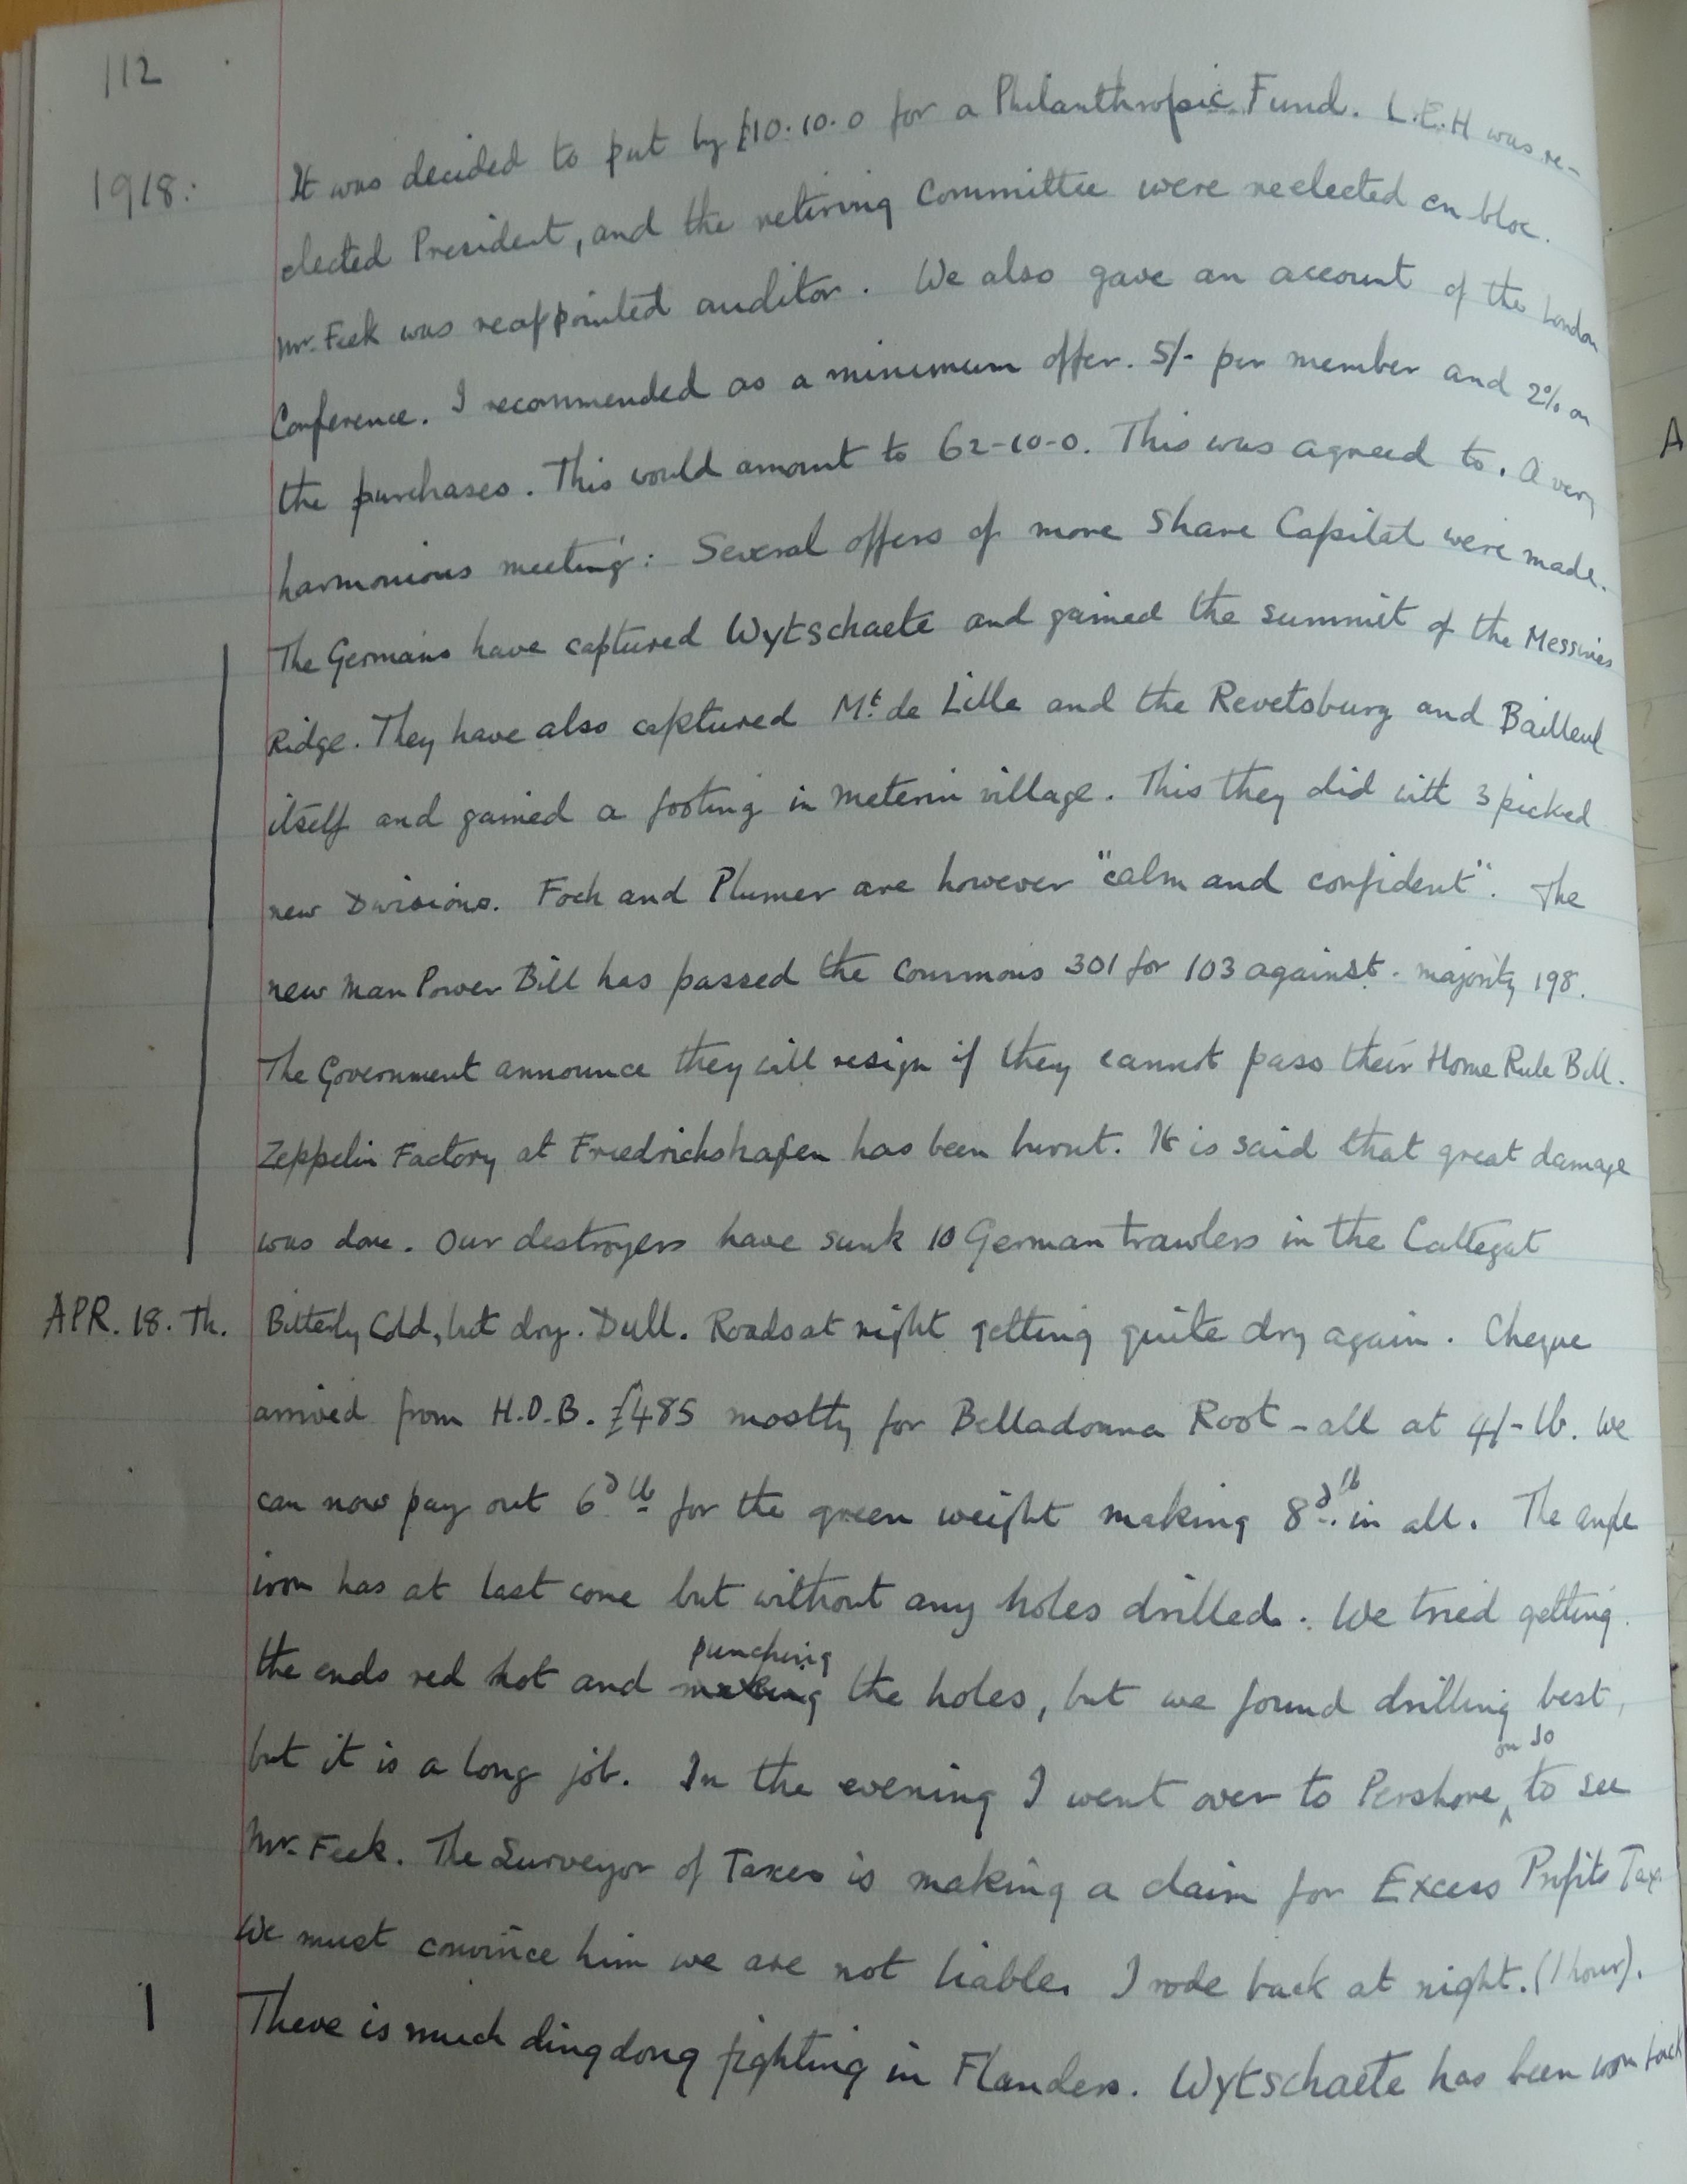 112
1918:
It was decided to put by £10.10.0 for a Philanthropic Fund. L.E.H was re-
elected President, and the retiring Committee were reelected en bloc.
Mr. Feek was reappointed auditor. We also gave an account of the London
Conference. I recommended as a minimum offer. 5/- per member and 2% on
the purchases. This would amount to 62-10-0. This was agreed to. A very
harmonious meeting: Several offers of more Share Capital were made.
The Germans have captured Wytschaete and gained the summit of the Messines
Ridge. They have also captured Mt. de Lille and the Revetsburg and Bailleul
itself and gained a footing in Meterin village. This they did with 3 picked
new Divisions. Foch and Plumer are however "calm and confident". The
new Man Power Bill has passed the Commons 301 for 103 against. majority 198.
The Government announce they will resign if they cannot pass their Home Rule Bill.
Zeppelin Factory at Friedrichshafen has been burnt. It is said that great damage
was done. Our destroyers have sunk 10 German trawlers in the Cattegat
APR. 18. Th. Bitterly Cold, but dry. Dull. Roads at night getting quite dry again. Cheque
arrived from H.D.B. £485 mostly for Belladonna Root - all at 4/- lb. We
can now pay out 6d lb for the green weight making 8d lb in all. The angle
iron has at last come but without any holes drilled. We tried getting
the ends red hot and making punching the holes, but we found drilling best,
but it is a long job. In the evening I went over to Pershore on Jo to see
Mr. Feek. The Surveyor of Taxes is making a claim for Excess Profits Tax.
We must convince him we are not liable. I rode back at night. (1 hour).
There is much dingdong fighting in Flanders. Wytschaete has been won back